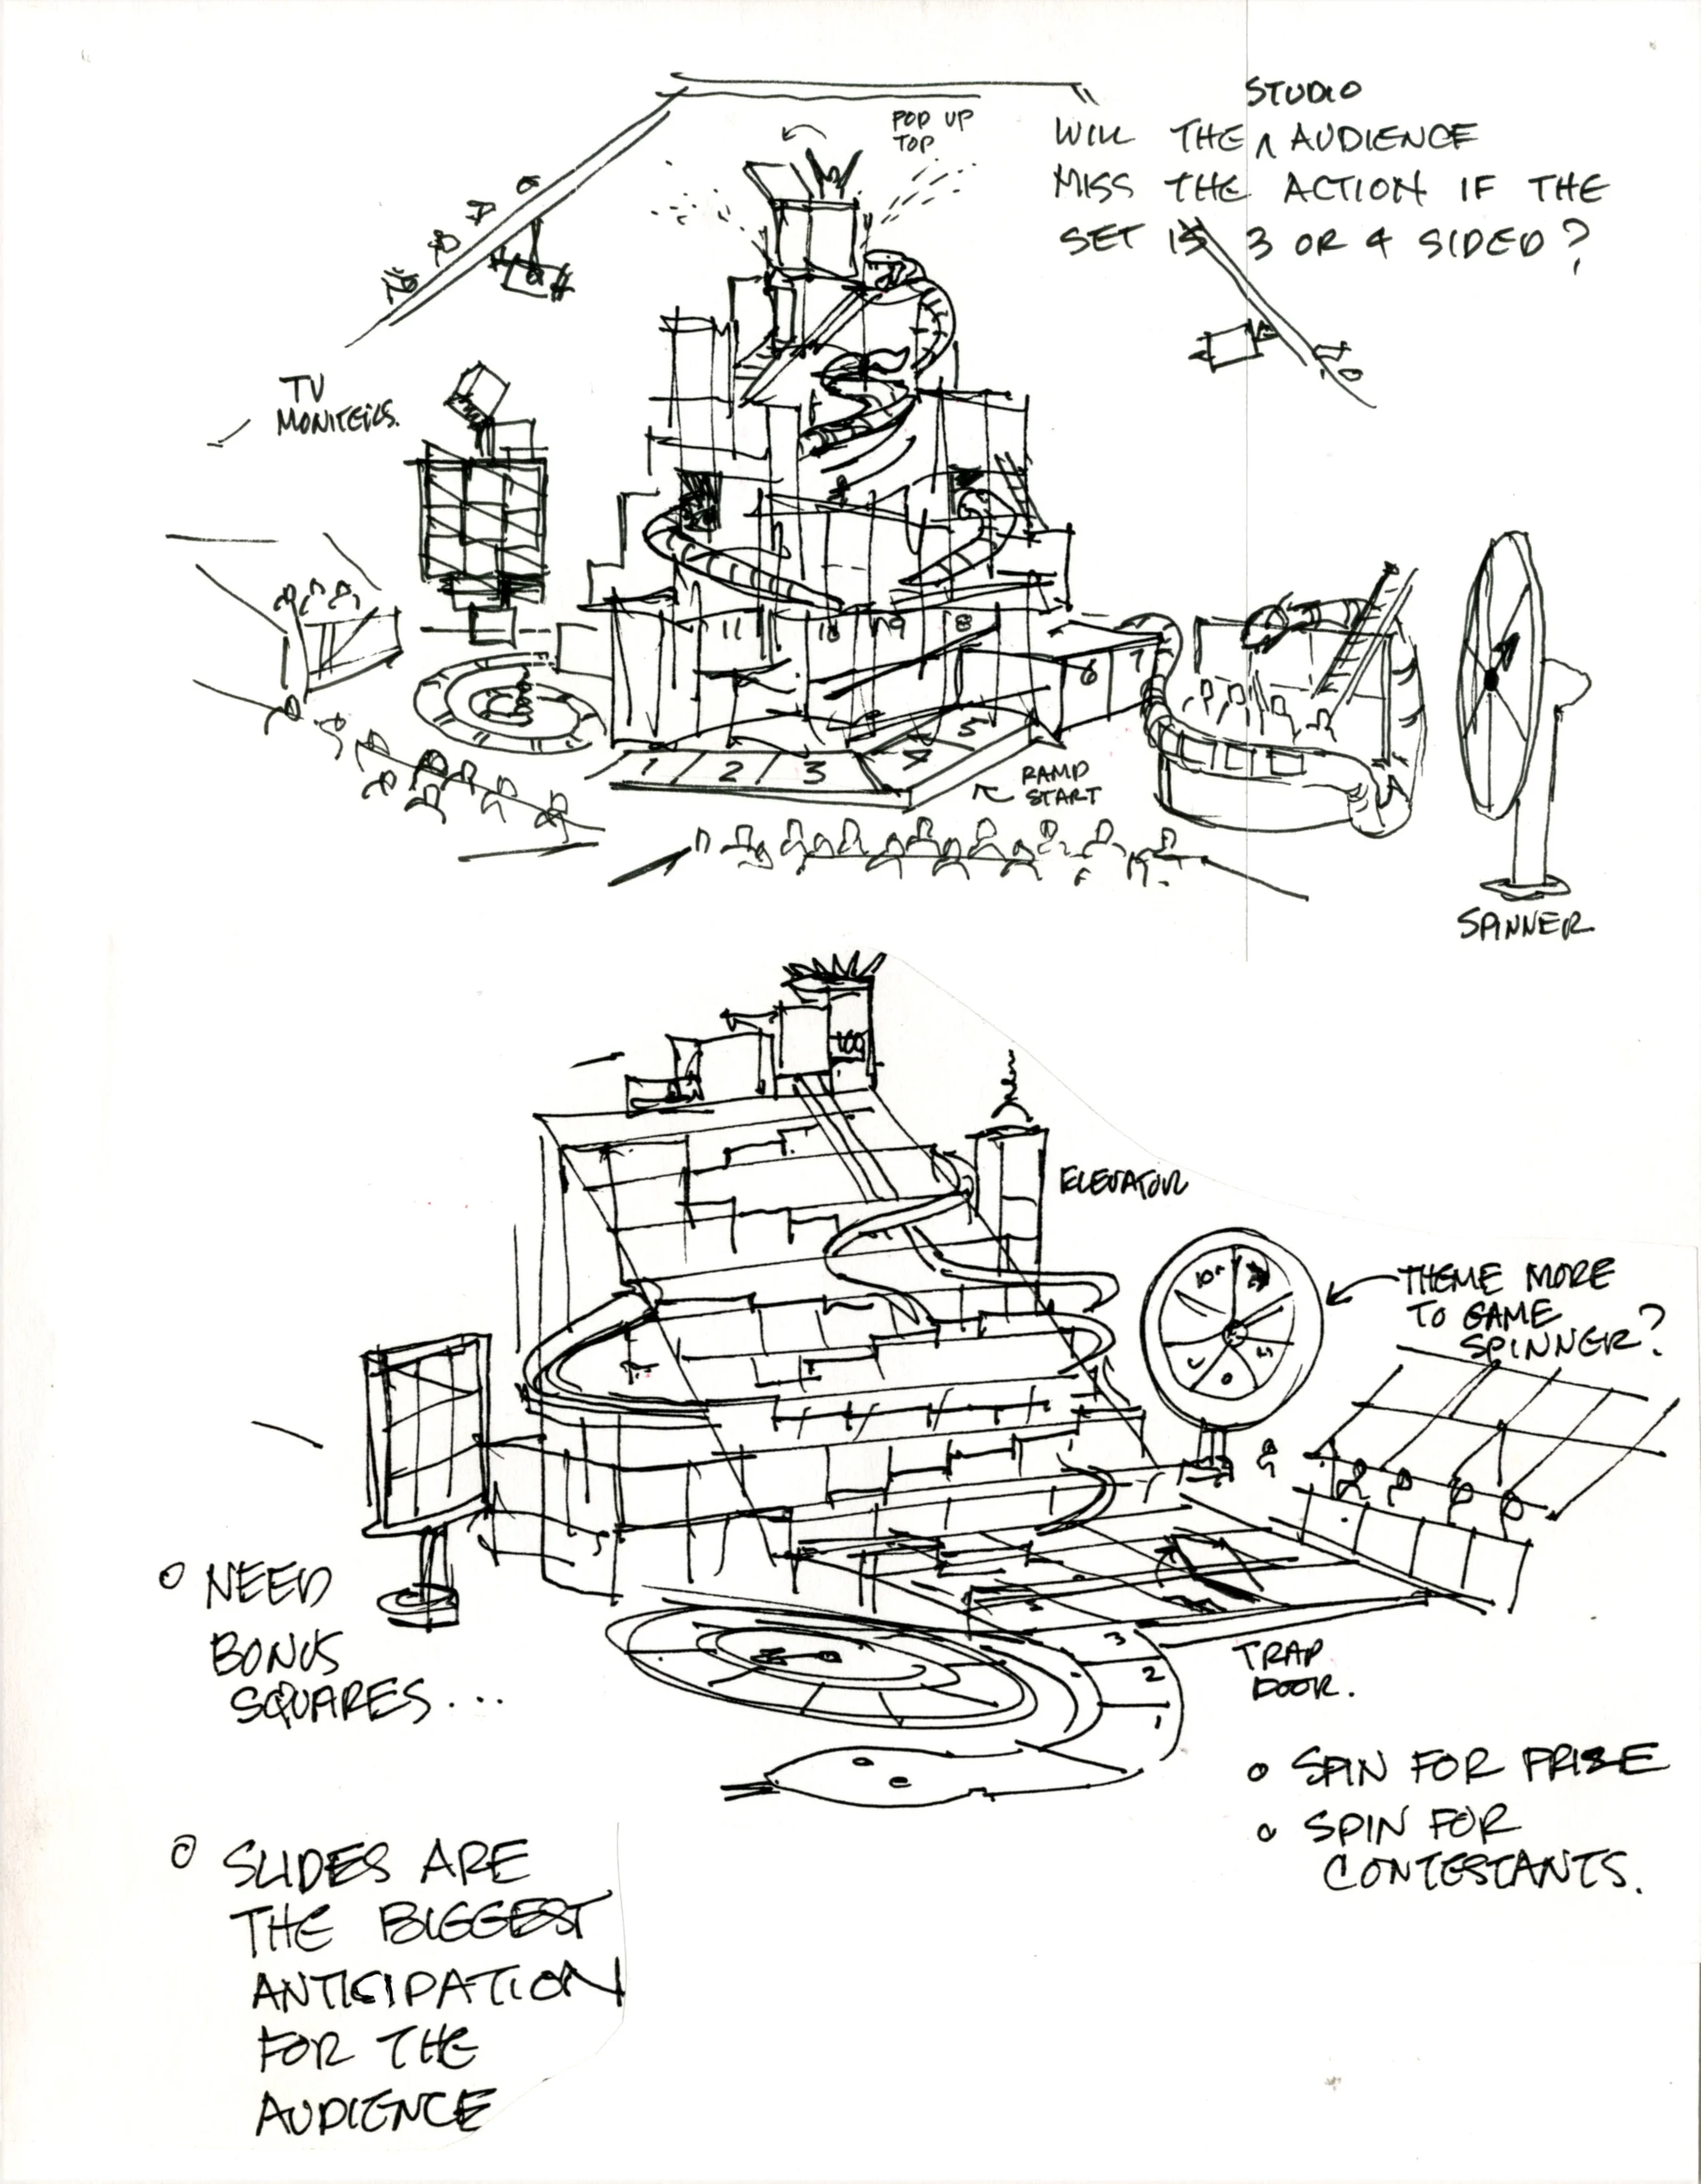 STUDIO
WILL THE ^ AUDIENCE
MISS THE ACTION IF THE
SET IS 3 OR 4 SIDED?
POP UP
TOP
TV
MONITERS.
11 10 9 8
6 7
5
4
1 2 3
RAMP
START
SPINNER
100
ELEVATOR
THEME MORE
TO GAME
SPINNER?
3
2
1
TRAP
DOOR.
o NEED
BONUS
SQUARES...
o SPIN FOR PRIZE
o SPIN FOR
CONTESTANTS.
o SLIDES ARE
THE BIGGEST
ANTICIPATION
FOR THE
AUDIENCE